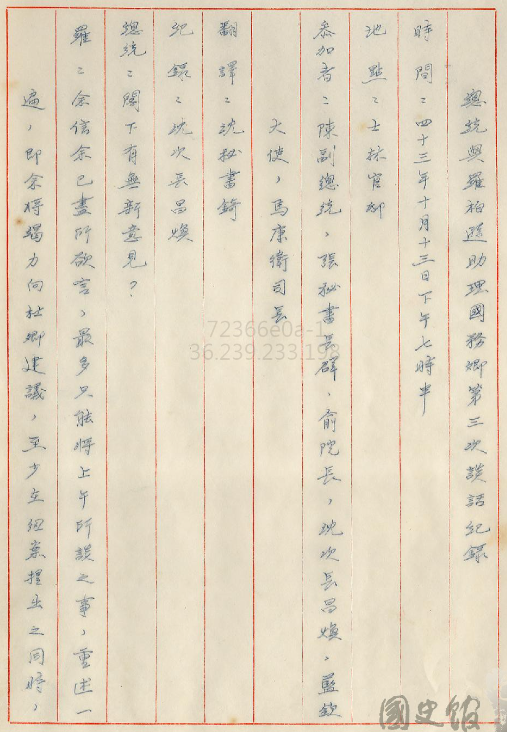 總統與羅伯遜助理國務卿第三次談話紀錄
時間：四十三年十月十三日下午七時半
地點：士林官邸
參加者：陳副總統，張秘書長群，俞院長，沈次長昌煥，藍欽
大使，馬康衛司長
翻譯：沈秘書錡
紀錄：沈次長昌煥
總統：閣下有無新意見？
羅：余信余已盡所欲言，最多只能將上午所談之事，重述一
遍，即余將竭力向杜卿建議，至少在紐案提出之同時，
72366e0a-1
36.239.233.198
國史館